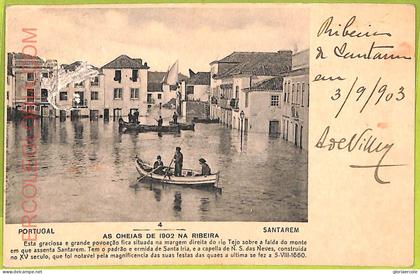 Ribeira
de Santarem
em
3/9/903
4
PORTUGAL AS CHEIAS DE 1902 NA RIBEIRA SANTAREM
Esta graciosa e grande povoação fica situada na margem direita do rio Tejo sobre a falda do monte
em que assenta Santarem. Tem o padrão e ermida de Santa Iria, e a capella de N. S. das Neves, construida
no XV seculo, que foi notavel pela magnificencia das suas festas das quaes a ultima se fez a 5-VIII-1660.